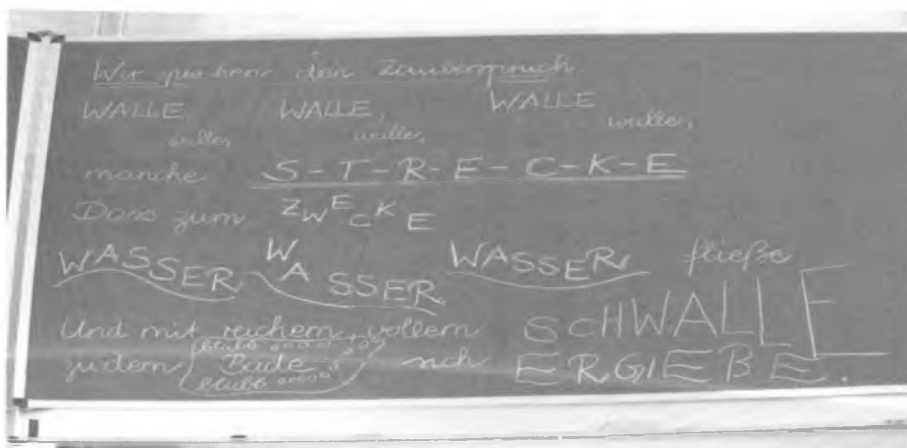 Wir sprechen den Zauberspruch
WALLE, WALLE, WALLE
walle, walle, walle,
manche S-T-R-E-C-K-E
Dass zum ZWECKE
WASSER WASSER WASSER fließe
Und mit reichem, vollem SCHWALLE
blubb ooooo ooo
zu dem Bade sich ERGIEßE.
blubb oooooo